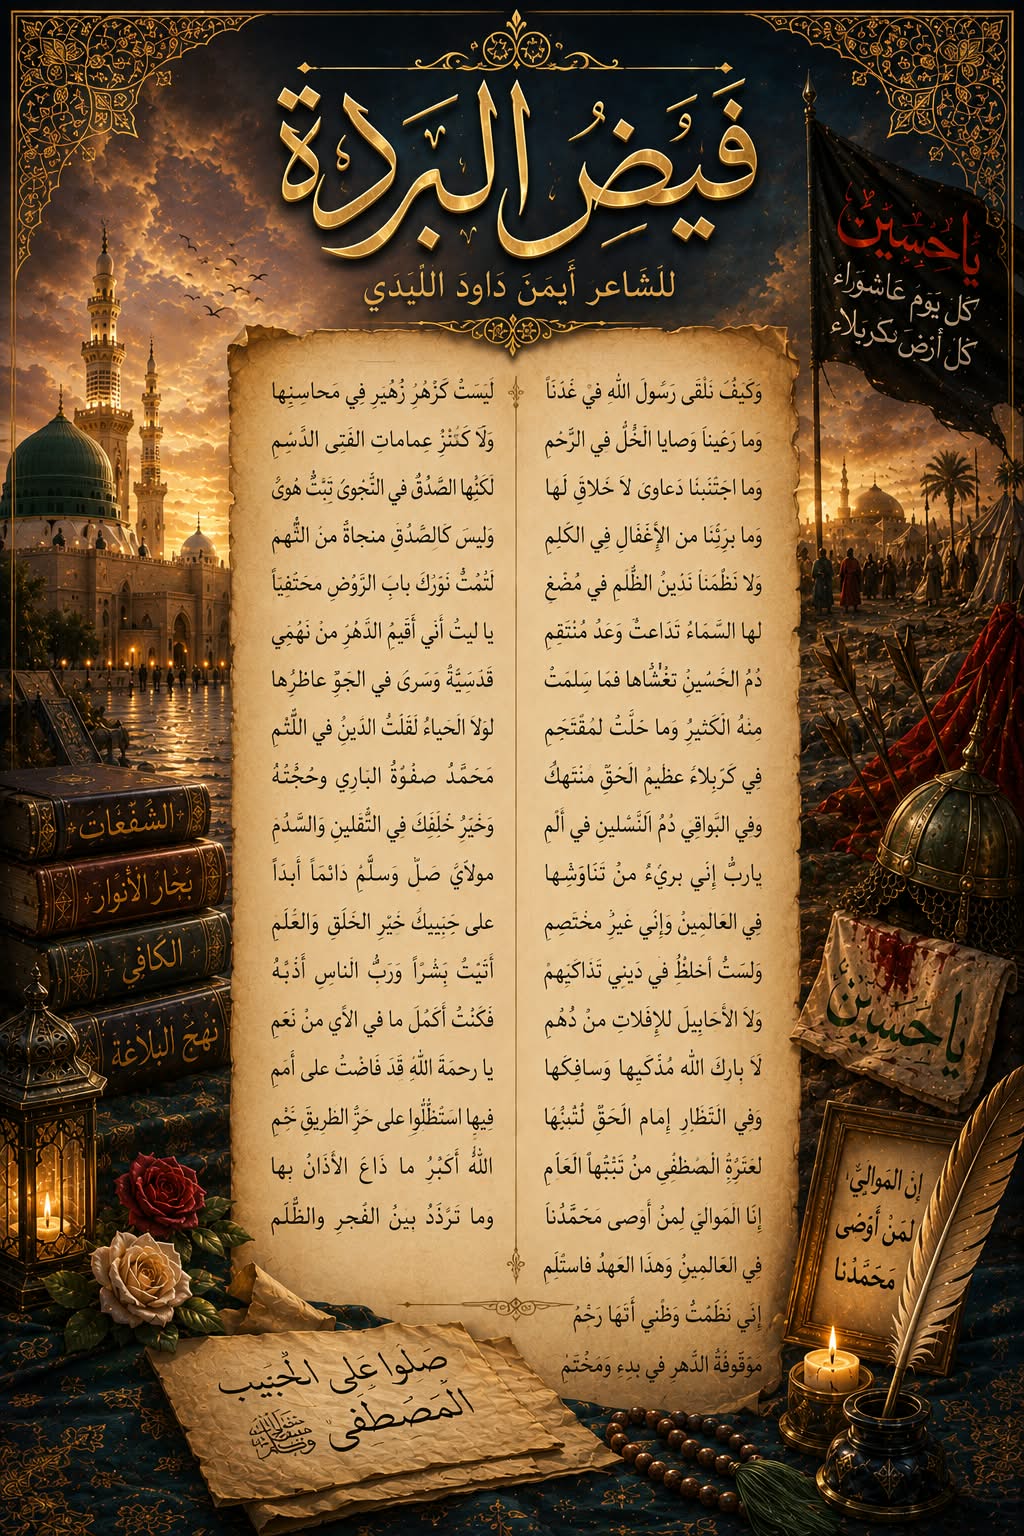 فَيْضُ البَردة
للشاعر أيمن داود اللبدي
يا حسين
كل يوم عاشوراء
كل أرض كربلاء
وَكَيفَ نَلْقى رَسُولَ اللهِ فيْ غَدَنَا
وَما رَعَيناَ وَصايا الْخُلُّ فِي الرَّحْمِ
وَما اجتَنَبنَا دَعاوىَ لاَ خَلاقِ لَهَا
وَما برِئْنا من الأَغْفَالِ فِي الكَلِمِ
وَلا نَظْمنَا نَدْينُ الظُّلمِ في مُضْغِ
لها السَّمَاءُ تَدَاعتْ وَعَدُ مُنْتَقِمِ
دُمُ الحَسُينِ تغُشَّاها فمَا سِلمَتْ
مِنْهُ الْكَثيرُ وَما حَلَّتْ لمُقْتَحِمِ
فِي كَرْبِلاءَ عظيْمِ الْحَقِّ مُنْتَهكُ
وفِي البَواقِيَ دُمُ اَلنَّسْلينِ في أَلْمِ
ياربُّ إنَي بريْءُ منْ تَنَاوَشِْها
فِي العَالمِينْ وَإنَي غيرُ مختَصِمِ
وَلسَتُ أخلِطُ في دَيني تَذَاكَيَهمْ
وَلاَ الأَحَابِيلَ للإفلاتِ مِنْ دُهْمِ
لاَ بارِكَ الله مُذْكَيها وَسافِكَها
وَفي الَنَظَارِ إمام الَحَقّ لُتُبُّهَا
لعَتَرُةِ الْمصْطَفَي مِنْ
إنَا المَواليَ لِمنْ أَوصى مَحَمَّدُناَ
فِي العَالمِينْ وَهذَا العَهدُ فاستْلَمِ
إنَي نَظَمْتُ وَظْني أَتَهَا رَحْمُ
مَوْقوفَةُ الدَّهرِ في بدءِ وَمَخُتَمْ
لَيَسَتْ كَزْهَرُ زُهُيَرِ فِي مَحاسِنِها
وَلاَ كَنَنْزُ عِماماتِ الفَتِى الدَّسْمِ
لَكَنْها الصَّدُقُ في النَّجْوىَ تَبَتُّ هُوىً
وَليسَ كَالِصَّدُقِ منجاةُ مِنُ التُّهمَ
لَثُمْتُ نَوَرُكَ بابَ الرَّوُضِ محَتْفِياً
يا ليتُ أَني أَقيَمُ الدَهْرَ منْ نَهُمِي
قَدُسَيَّةُ وَسَرىَ في الجَوّ عاطرُها
لوَلاَ الَحَياءُ لَقَلَتُ الدَينُ في اللُّثْمِ
مَحَمَّدُ صفوُةُ البَارِي وَحُجَّتُهُ
وَخَيَرُ خُلَفِكَ فِي الثَّقَلينِ وَالسَّدُمِ
مولاَيَ صَلِّ وَسلَّمْ دَائمَاً أَبدَاً
على حَبَيبِكُ خَيْرِ الخَلَقِ وَالعُلَمِ
أَتَيْتُ بَشْراً وَرَبُّ الناسِ أَدْبَهُ
فَكَنْتُ أَكَمْلَ ما في الأَي منْ نَعَمِ
يا رحمَةَ اللَّهِ قَدَ فَاضْتُ على أَممِ
فِيها استَظْلُّوا على حَرُّ الطَريقِ خَمْمِ
اللهُ أَكَبْرُ ما ذَاعَ الأذَانُ بها
وَما تَرَدَدُ بينُ الفُجرِ والظُلَّمِ
الشُّفَعَات
بَحار الأنوار
الكافي
نهج البلاغة
يا حسين
إن المَواليَ
لمَنْ أَوْصَى
مَحَمَّدُنا
صَلوا عَلى الحَبَيب
الْمَصْطفىَ